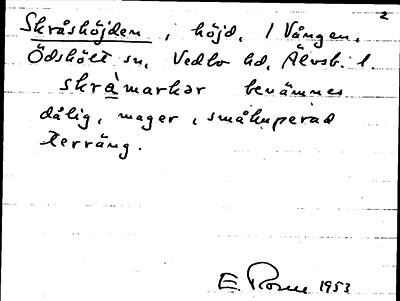 2
Skråshöjden, höjd, / Vången,
Ödsköłt sn, Vedbo hd, Älvsb. l.
skråmarker benämnes
dålig, mager, småkuperad
terräng.
E. Rosen 1953